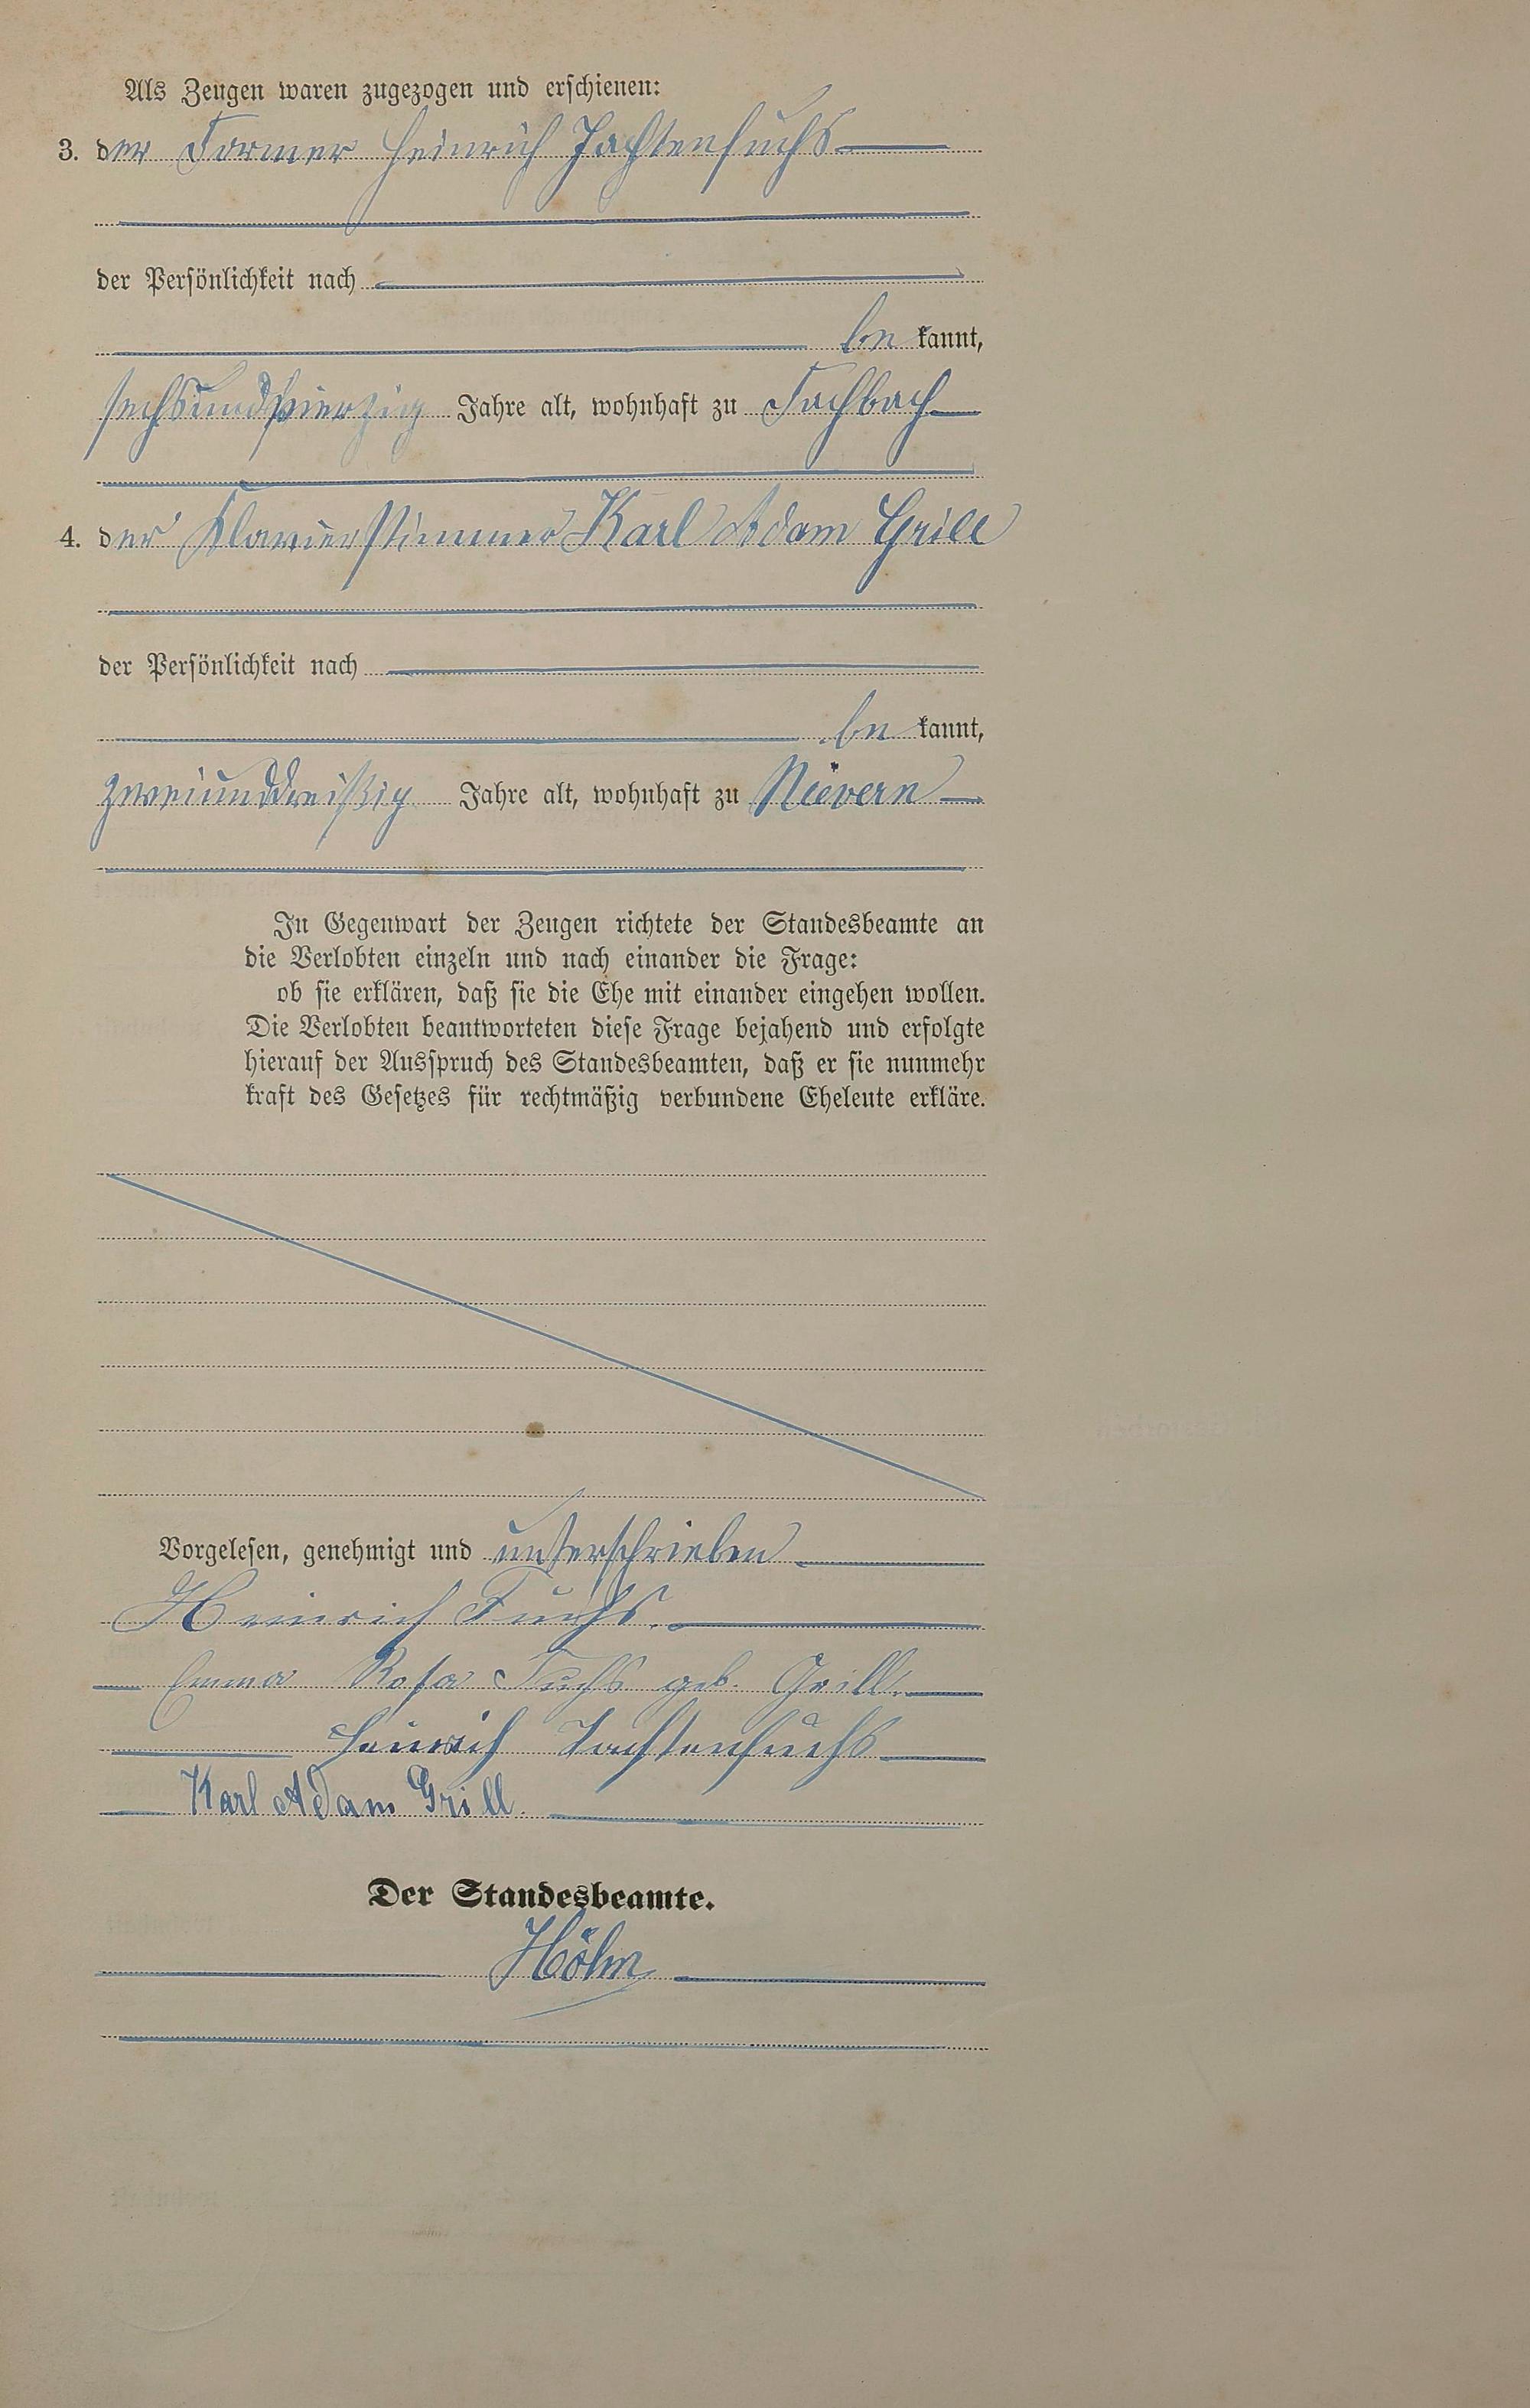 Als Zeugen waren zugezogen und erschienen:
3. der Former Heinrich Jachtenfuchs
der Persönlichkeit nach
be kannt,
sechsundvierzig Jahre alt, wohnhaft zu Fachbach
4. der Klavierstimmer Karl Adam Grill
der Persönlichkeit nach
be kannt,
zweiunddreißig Jahre alt, wohnhaft zu Nievern
In Gegenwart der Zeugen richtete der Standesbeamte an
die Verlobten einzeln und nach einander die Frage:
ob sie erklären, daß sie die Ehe mit einander eingehen wollen.
Die Verlobten beantworteten diese Frage bejahend und erfolgte
hierauf der Ausspruch des Standesbeamten, daß er sie nunmehr
kraft des Gesetzes für rechtmäßig verbundene Eheleute erkläre.
Vorgelesen, genehmigt und unterschrieben
Heinrich Fuchs.
Emma Rosa Fuchs geb. Grill.
Heinrich Jachtenfuchs
Karl Adam Grill.
Der Standesbeamte.